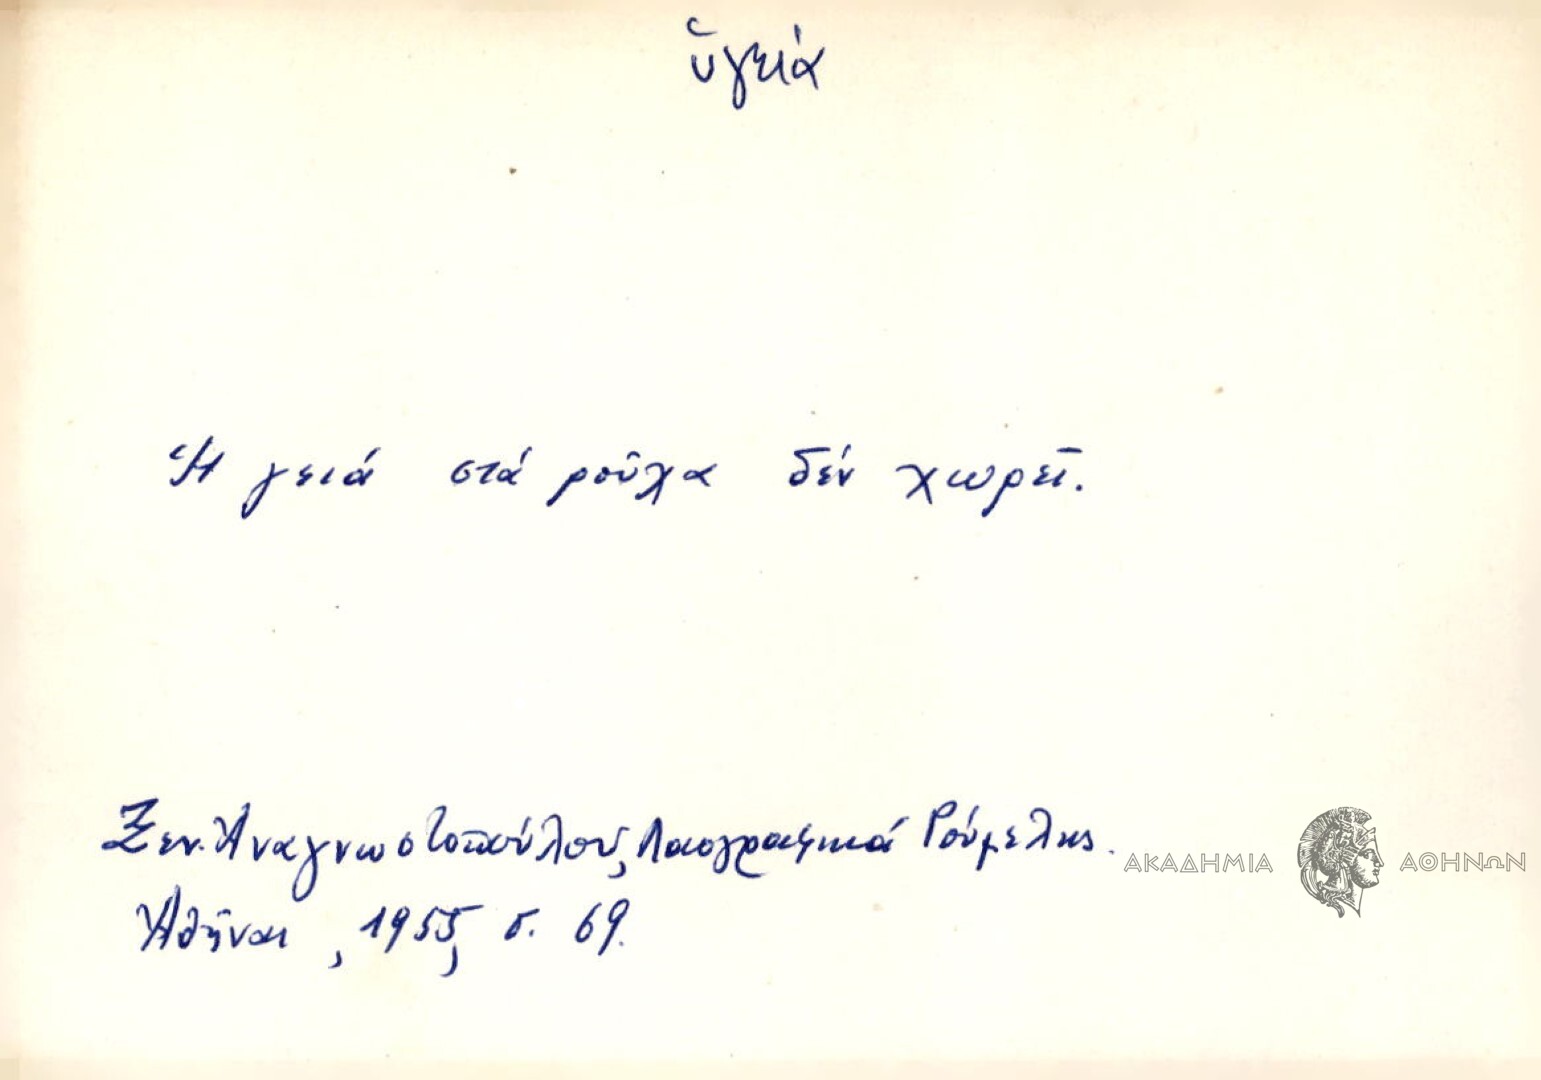 ὑγειά
Ἡ γειά στά ροῦχα δέν χωρεῖ.
Ξεν. Ἀναγνωστοπούλου, Λαογραφικά Ρούμελης.
Ἀθῆναι, 1955, σ. 69.
ΑΚΑΔΗΜΙΑ ΑΘΗΝΩΝ